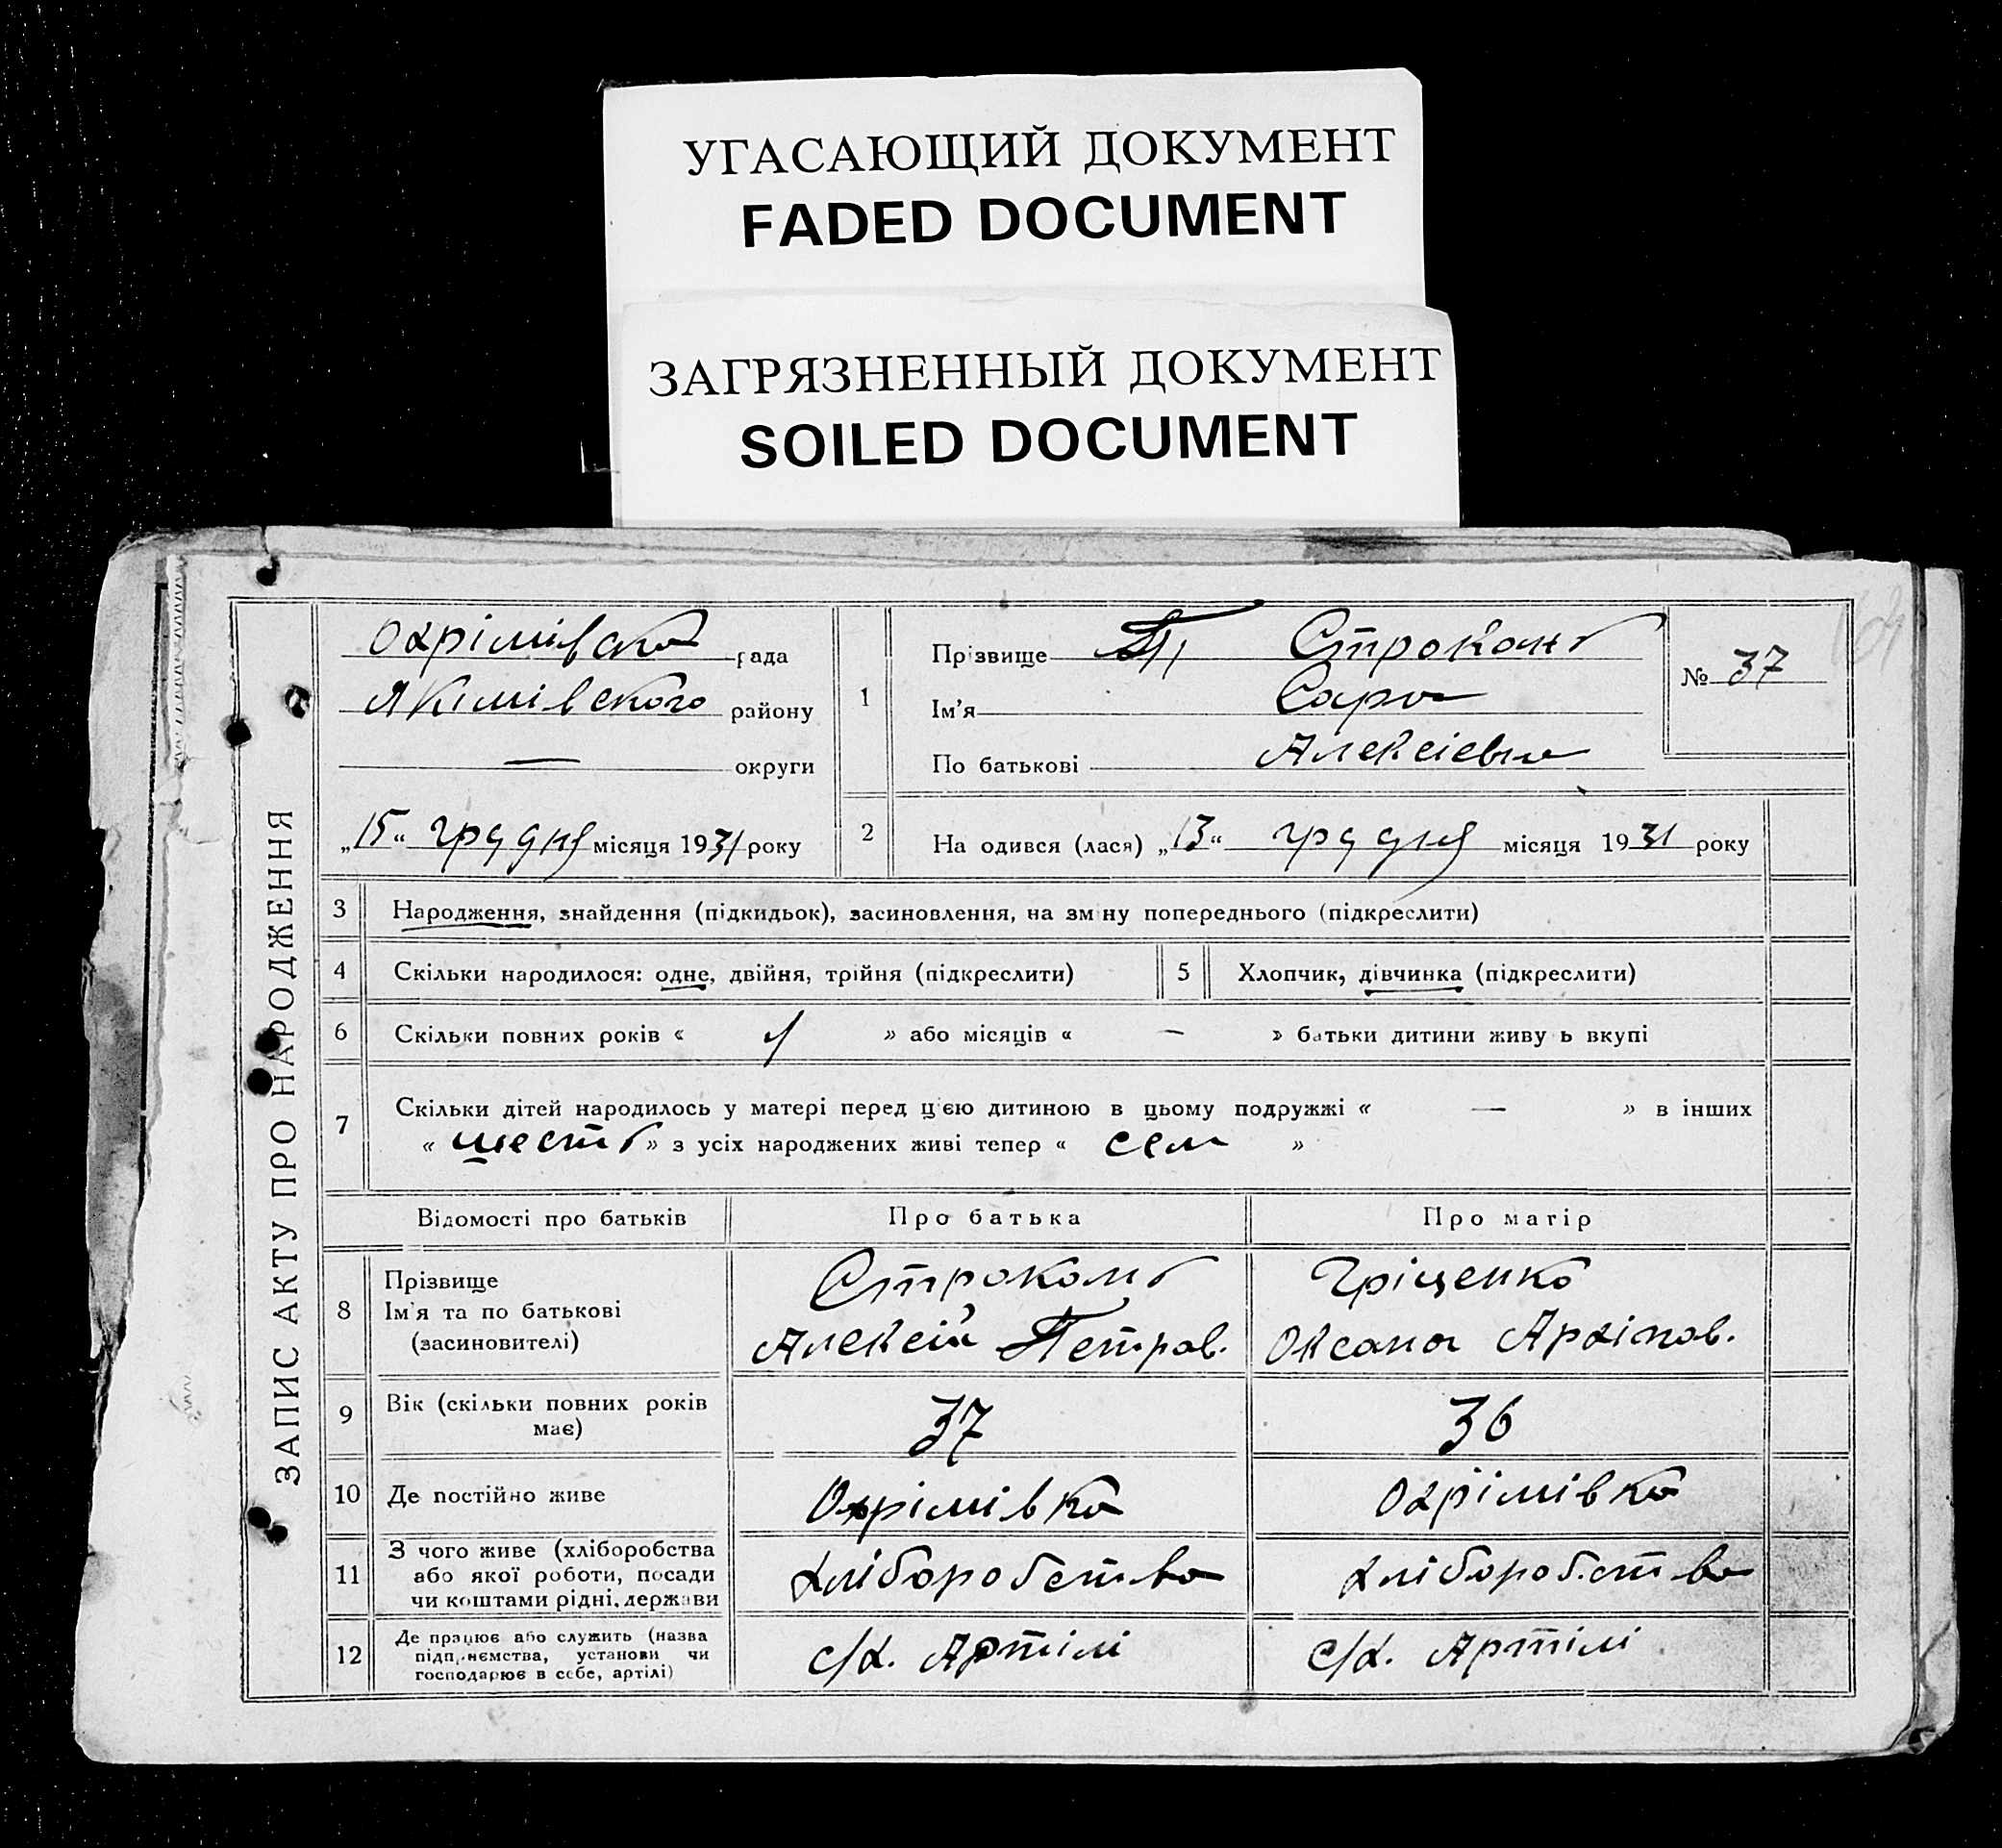 УГАСАЮЩИЙ ДОКУМЕНТ
FADED DOCUMENT
ЗАГРЯЗНЕННЫЙ ДОКУМЕНТ
SOILED DOCUMENT
ЗАПИС АКТУ ПРО НАРОДЖЕННЯ
Охрімівска рада
Якімівского району
— округи
„15“ грудня місяця 1931 року
1
Прізвище Строкань
Ім'я Сара
По батькові Алексієвна
№ 37
2 На одився (лася) „13“ грудня місяця 1931 року
3 Народження, знайдення (підкидьок), засиновлення, на зміну попереднього (підкреслити)
4 Скільки народилося: одне, двійня, трійня (підкреслити)
5 Хлопчик, дівчинка (підкреслити)
6 Скільки повних років « » або місяців « — » батьки дитини живу ь вкупі
7 Скільки дітей народилось у матері перед цією дитиною в цьому подружжі « — » в інших
« шесть » з усіх народжених живі тепер « сем »
Відомості про батьків Про батька Про матір
8 Прізвище
Ім'я та по батькові
(засиновителі)
Строкань
Алексій Петров.
Гріценко
Оксана Архіпов.
9 Вік (скільки повних років
має)
37
36
10 Де постійно живе
Охрімівка
Охрімівка
11 З чого живе (хліборобства
або якої роботи, посади
чи коштами рідні, держави
хліборобство
хліборобство
12 Де працює або служить (назва
підприємства, установи чи
господарює в себе, артілі)
с/х. Артілі
с/х. Артілі